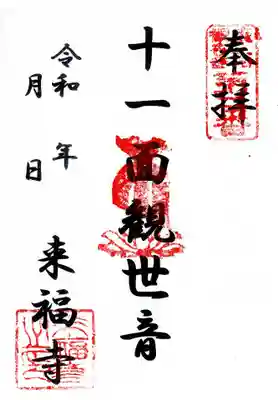 奉拝
十一面観世音
令和　年
月　日
来福寺